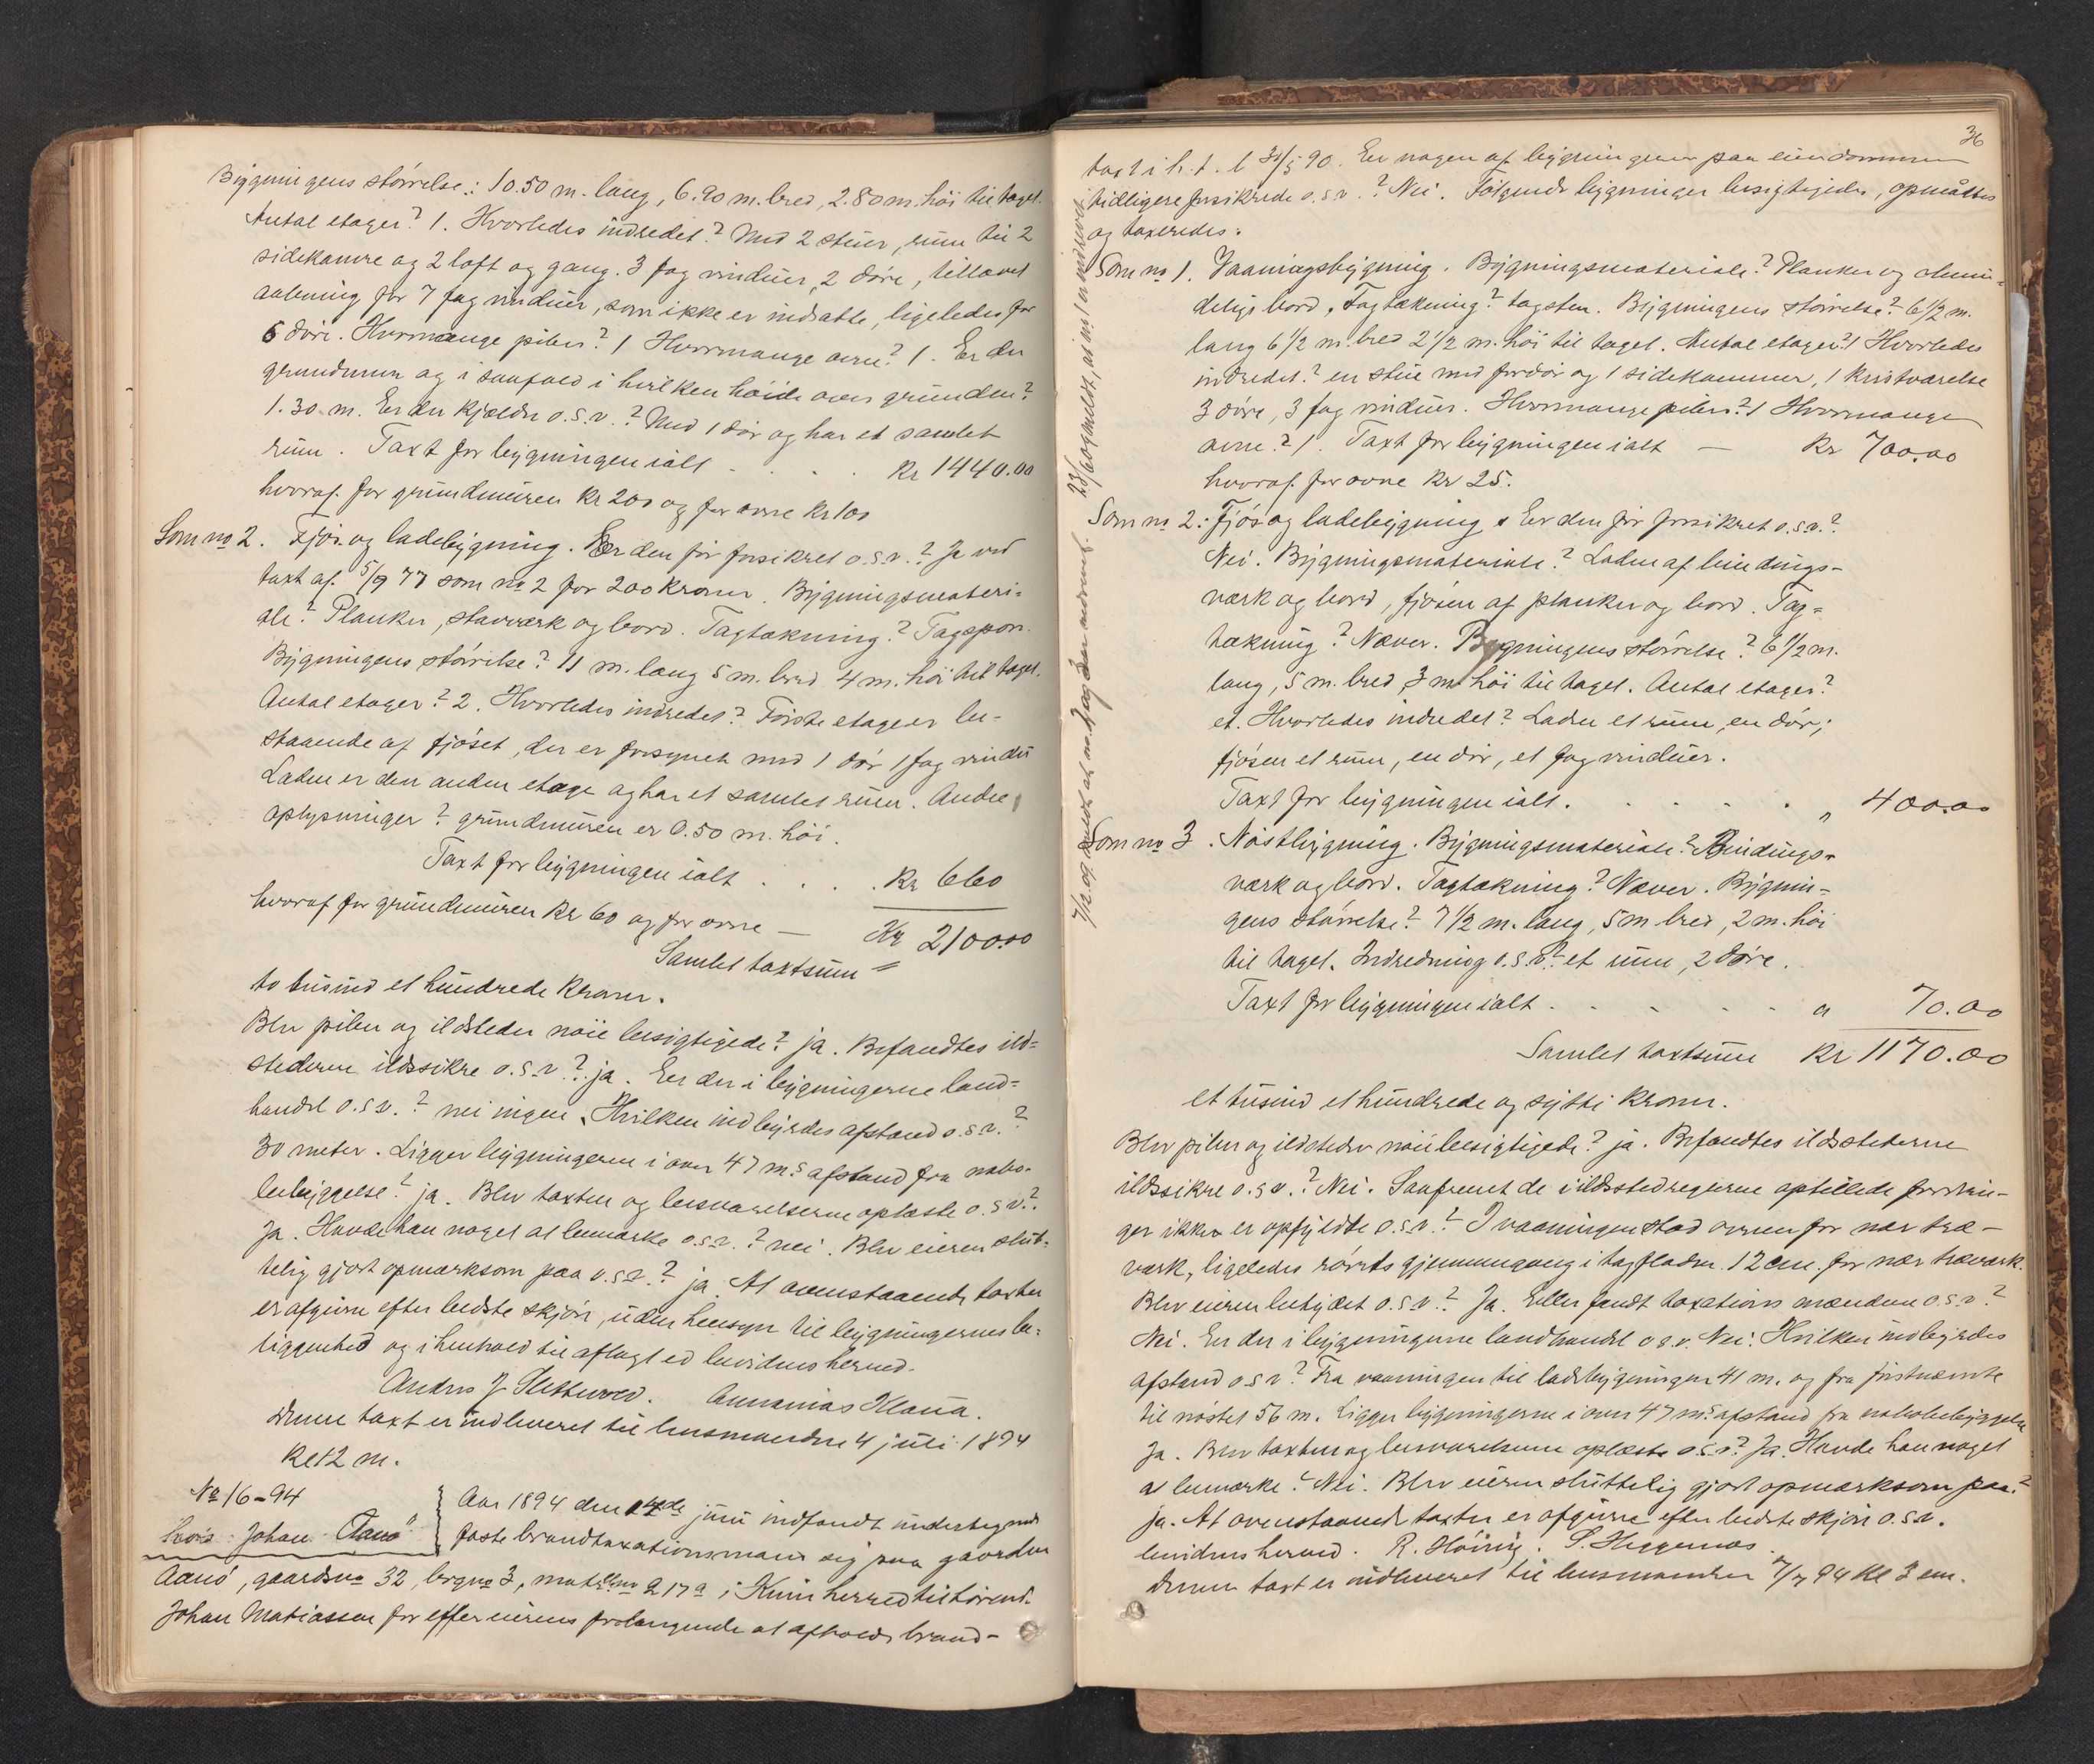 Bygningens størrelse: 10.50 m. lang, 6.90 m. bred, 2.80 m. høi til taget.
Antal etager? 1. Hvorledes indredet? Med 2 stuer, rum til 2
sidekamre og 2 loft og gang. 3 fag vinduer, 2 døre, tillavet
aabning for 7 fag vinduer, som ikke er indsatte, ligeledes for
5 døre. Hvormange piber? 1 Hvormange ovne? 1. Er der
grundmur og i saafald i hvilken høide over grunden?
1.30 m. Er der kjælder o.s.v.? Med 1 dør og har et samlet
rum. Taxt for bygningen ialt . . . . Kr 1440.00
hvoraf for grundmuren Kr 200 og for ovne Kr 100
Som no 2. Fjøs og ladebygning. Er den før forsikret o.s.v.? Ja ved
taxt af 5/9 77 som no 2 for 200 kroner. Bygningsmateri-
ale? Planker, stavværk og bord. Tagtækning? Tagspon.
Bygningens størrelse? 11 m. lang 5 m. bred 4 m. høi til taget.
Antal etager? 2. Hvorledes indredet? Første etage er be-
staaende af fjøset, der er forsynet med 1 dør 1 fag vindu
Laden er den anden etage og har et samlet rum. Andre
oplysninger? grundmuren er 0.50 m. høi.
Taxt for bygningen ialt . . . . Kr 660
hvoraf for grundmuren Kr 60 og for ovne —
Samlet taxtsum = Kr 2100.00
to tusind et hundrede Kroner.
Blev piber og ildsteder nøie besigtigede? ja. Befandtes ild-
stederne ildssikre o.s.v.? ja. Er der i bygningerne land-
handel o.s.v.? nei ingen. Hvilken indbyrdes afstand o.s.v.?
30 meter. Ligger bygningerne i over 47 m.s afstand fra nabo-
bebyggelse? ja. Blev taxten og besvarelserne oplæste o.s.v.?
Ja. Havde han noget at bemærke o.s.v.? nei. Blev eieren slut-
telig gjort opmærksom paa o.s.v.? ja. At ovenstaaende taxter
er afgivne efter bedste skjøn, uden hensyn til bygningernes be-
liggenhed og i henhold til aflagt ed bevidnes herved.
Anders J Slettevold. Annanias Klaua.
Denne taxt er indleveret til lensmanden 4 juli 1894
Kl 12 m.
No 16-94
hos Johan Aanø
Aar 1894 den 4de juni indfandt undertegnede
faste brandtaxationsmænd sig paa gaarden
Aanø, gaardsno 32, brgno 3, matrlno 217a i Kinn herred tilhørende
Johan Matiassen for efter eierens forlangende at afholde brand-
36
taxt i h.t. l 30/5 90. Er nogen af bygningerne paa eiendommen
tidligere forsikrede o.s.v.? Nei. Følgende bygninger besigtigedes, opmåltes
og taxeredes:
Som no 1. Vaaningsbygning. Bygningsmateriale? Planker og almin-
delige bord. Tagtækning? tagsten. Bygningens størrelse? 6 1/2 m.
lang 6 1/2 m. bred 2 1/2 m. høi til taget. Antal etager? 1 Hvorledes
indredet? en stue med fordør og 1 sidekammer, 1 kostværelse
3 døre, 3 fag vinduer. Hvormange piber? 1 Hvormange
ovne? 1. Taxt for bygningen ialt — Kr 700.00
hvoraf for ovne Kr 25.
Som no 2: Fjøs og ladebygning. Er den før forsikret o.s.v.?
Nei. Bygningsmateriale? Laden af bindings-
værk og bord, fjøsen af planker og bord. Tag-
tækning? Næver. Bygningens størrelse? 6 1/2 m.
lang, 5 m. bred, 3 m. høi til taget. Antal etager?
et. Hvorledes indredet? Laden et rum, en dør;
fjøsen et rum, en dør, et fag vinduer.
Taxt for bygningen ialt . . . . . " 400.00
Som no 3. Nøstbygning. Bygningsmateriale? Bindings-
værk og bord. Tagtækning? Næver. Bygnin-
gens størrelse? 7 1/2 m. lang, 5 m bred, 2 m. høi
til taget. Indredning o.s.v.? et rum, 2 døre.
Taxt for bygningen ialt . . . . . " 70.00
Samlet taxtsum Kr 1170.00
et tusind et hundrede og sytti kroner.
Blev piber og ildsteder nøie besigtigede? ja. Befandtes ildstederne
ildssikre o.s.v.? Nei. Saafremt de i ildsstedreglerne opstillede fordrin-
ger ikke er opfyldte o.s.v.? I vaaningen stod ovnen for nær træ-
værk, ligeledes rørets gjennemgang i tagfladen 12 cm. for nær træværk.
Blev eieren betydet o.s.v.? Ja. Eller fandt taxationsmændene o.s.v.?
Nei. Er der i bygningerne landhandel o.s.v. Nei. Hvilken indbyrdes
afstand o.s.v? Fra vaaningen til ladebygningen 41 m. og fra førstnævnte
til nøstet 56 m. Ligger bygningerne i over 47 m.s afstand fra nabobebyggelse
Ja. Blev taxten og besvarelserne oplæste o.s.v? Ja. Havde han noget
at bemærke? Nei. Blev eieren sluttelig gjort opmærksom paa?
ja. At ovenstaaende taxter er afgivne efter bedste skjøn o.s.v.
bevidnes herved. R. Høivig. S. Heggenæs.
Denne taxt er indleveret til lensmanden 7/7 94 Kl 3 em.